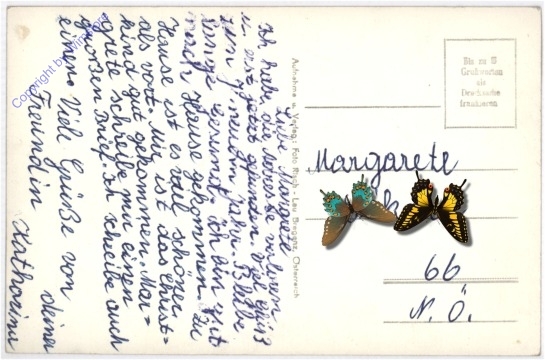 Liebe Margarete
Ich habe die Adresse verloren
u. erst jetzt gefunden. Viel Glück
zum neuen Jahr. Bleibe
lange gesund. Ich bin gut
nach Hause gekommen. Zu
Hause ist es viel schöner
als dort. Mir ist das Christ=
kind gut gekommen. Mar=
grete schreibe mir einen
grossen Brief. Ich schreibe auch
einen. Viele Grüße von deiner
Freundin Katharina
Aufnahme u. Verlag: Foto Risch-Lau, Bregenz, Österreich
Bis zu 5
Grußworten
als
Drucksache
frankieren
Margarete
66
N. Ö.
Copyright by